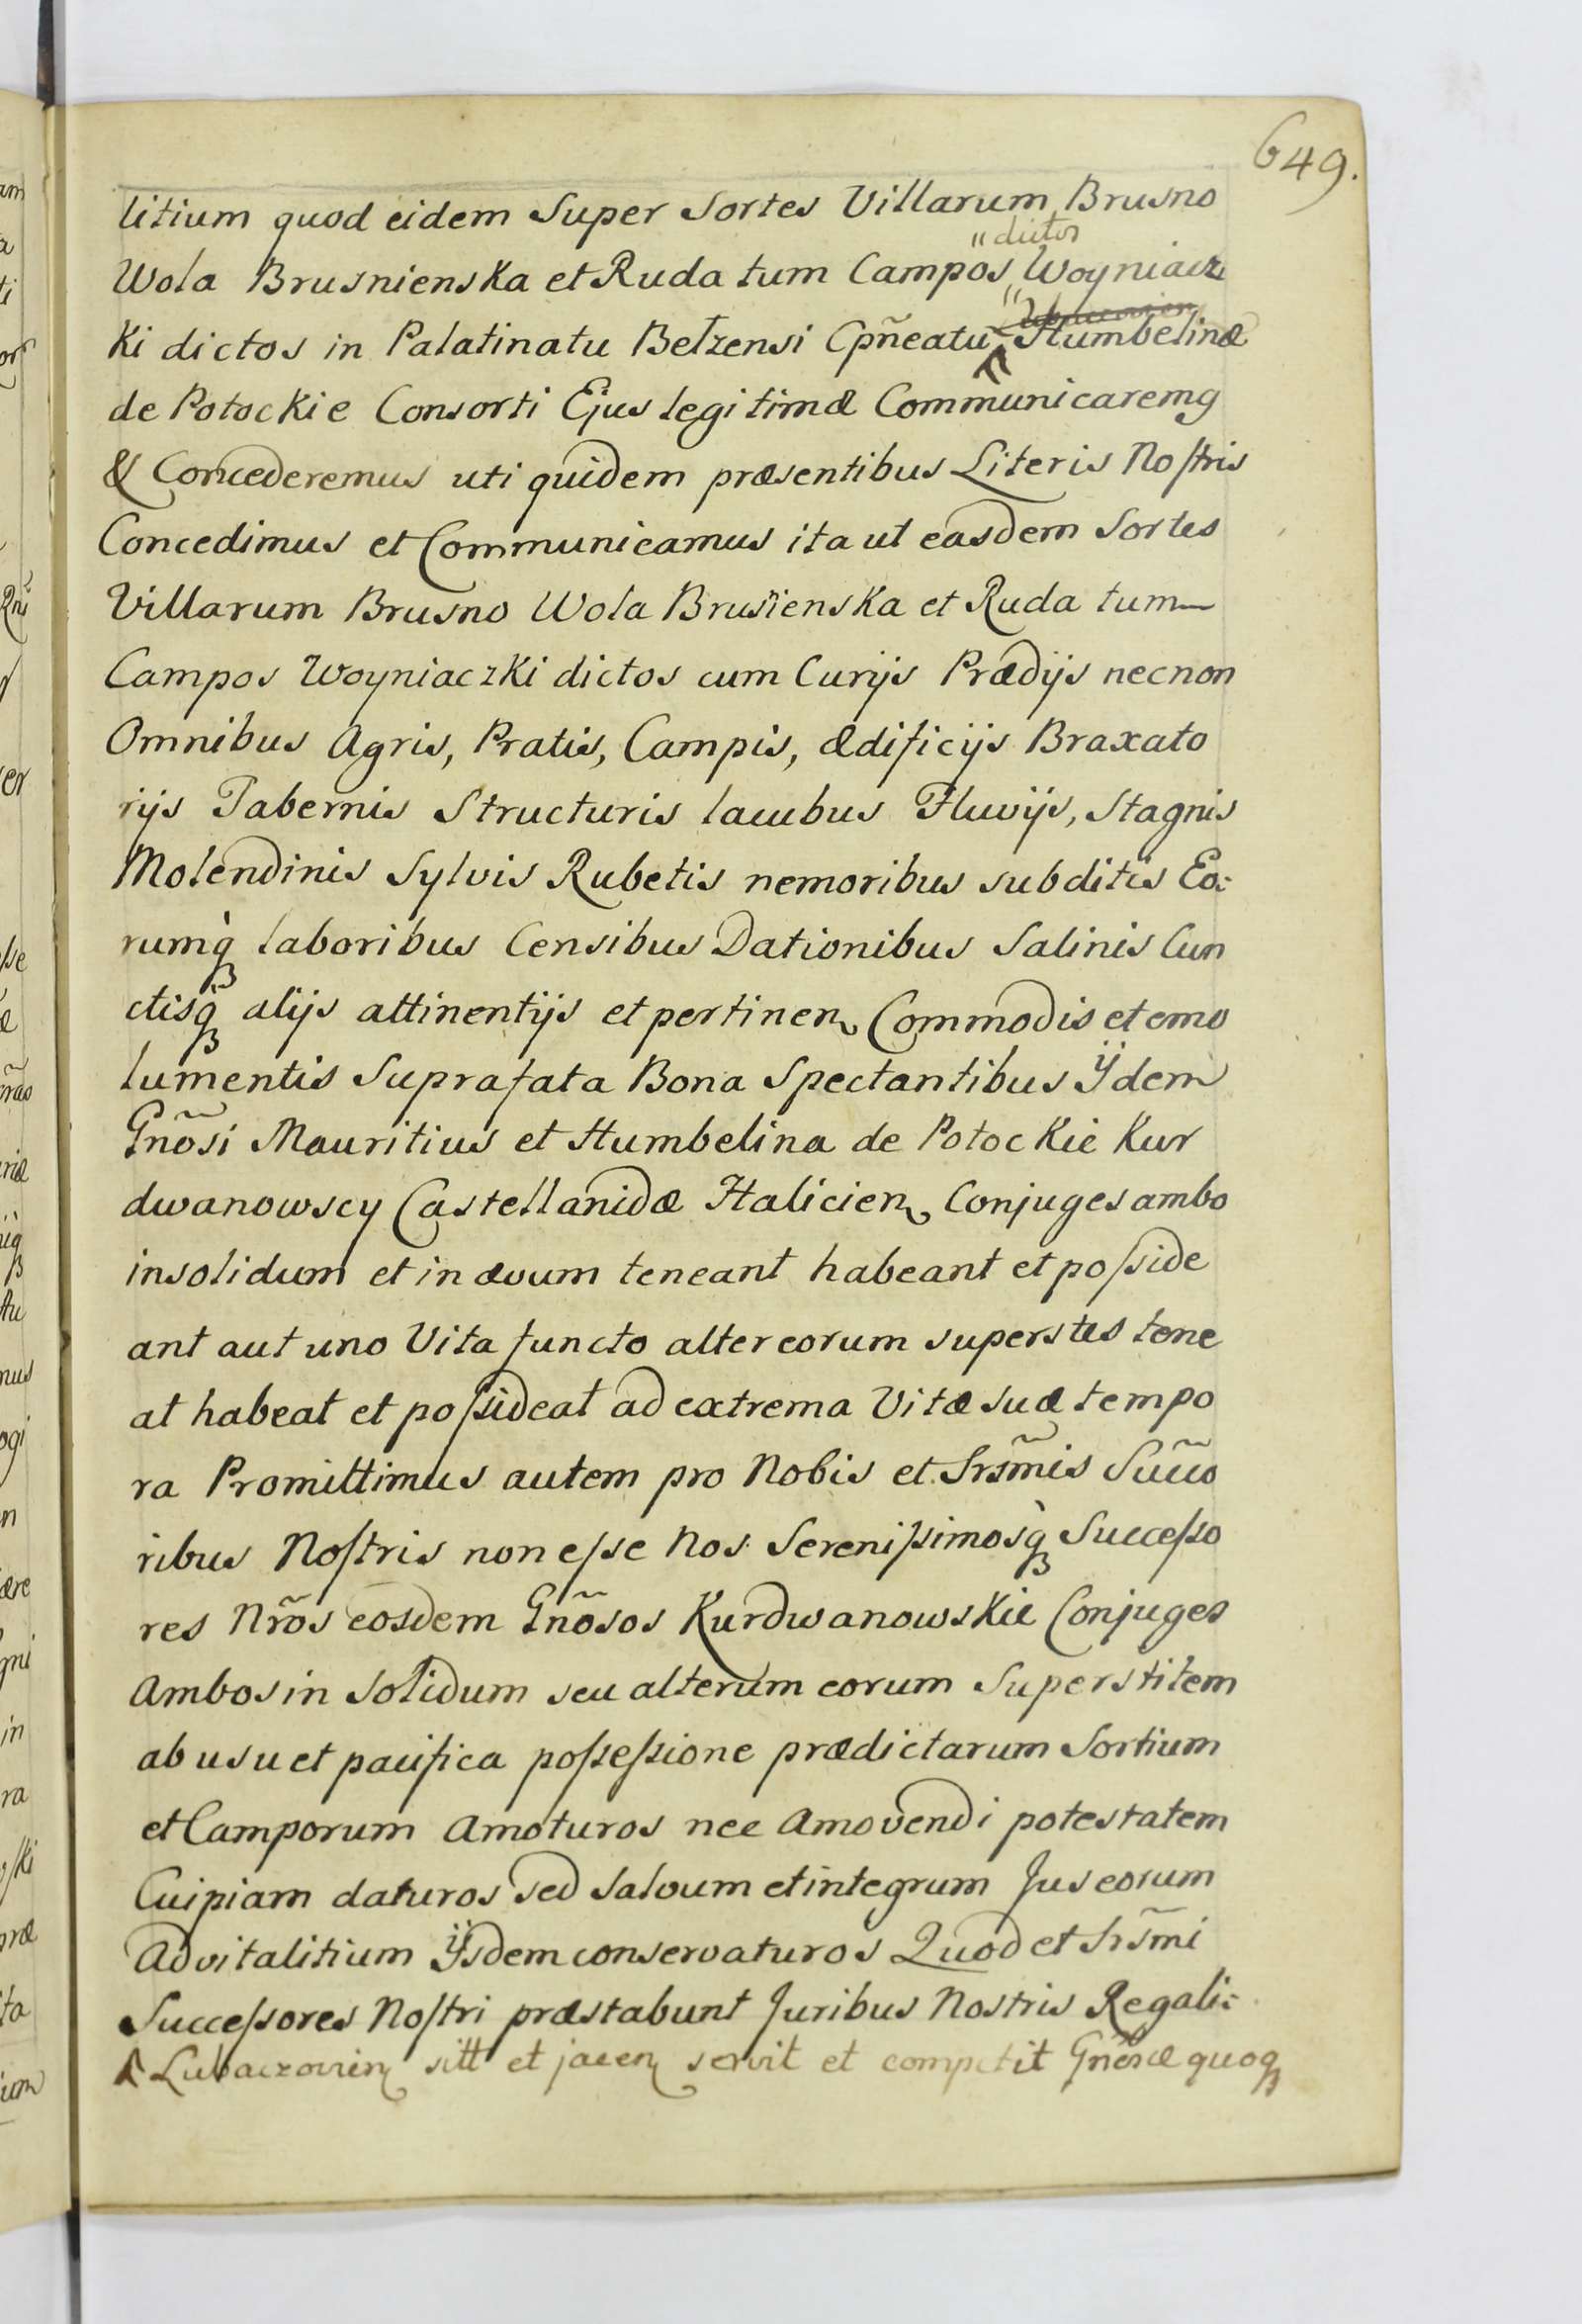 649.
litium quod eidem Super Sortes Villarum Brusno
"dictos
Wola Brusnienska et Ruda tum Campos Woyniacz
Ki dictos in Palatinatu Belzensi Cpñeatu Humbelinæ
de Potockie Consorti Ejus legitimæ Communicaremg
& Concederemus uti quidem præsentibus Literis Noſtris
Concedimus et Communicamus ita ut easdem Sortes
Villarum Brusno Wola Brusñienska et Ruda tum
Campos Woyniaczki dictos cum Curijs Prædijs necnon
Omnibus Agris, Pratis, Campis, ædificijs Braxato
rijs Tabernis Structuris lacubus Fluvijs, Stagnis
Molendinis Sylvis Rubetis nemoribus subditis Eo:
rumq̀ laboribus Censibus Dationibus Salinis Cun
ctisq̀ alijs attinentijs et pertinen Commodis et emo
lumentis Suprafata Bona Spectantibus Ÿdem
Gnõsi Mauritius et Humbelina de Potockie Kur
dwanowscy Castellanidæ Halicien Conjuges ambo
insolidum et in ævum teneant habeant et poſside
ant aut uno Vita functo alter eorum superstes tene
at habeat et poſsideat ad extrema Vitæ suæ tempo
ra Promittimus autem pro Nobis et Srsm̃is Succ̃o
ribus Noſtris non eſse Nos Sereniſsimosq̀ Succeſso
res Nrõs eosdem Gnõsos Kurdwanowskie Conjuges
Ambos in Solidum seu alterum eorum Superstitem
ab usu et pacifica poſseſsione prædictarum Sortium
et Camporum Amoturos nec Amovendi potestatem
Cuipiam daturos sed Salvum et integrum Jus eorum
Advitalitium Ÿsdem conservaturos Quod et Srsm̃i
Succeſsores Noſtri præstabunt Juribus Nostris Regali:
Lubaczovien sitt et jacen servit et competit Gnẽsæ quoq